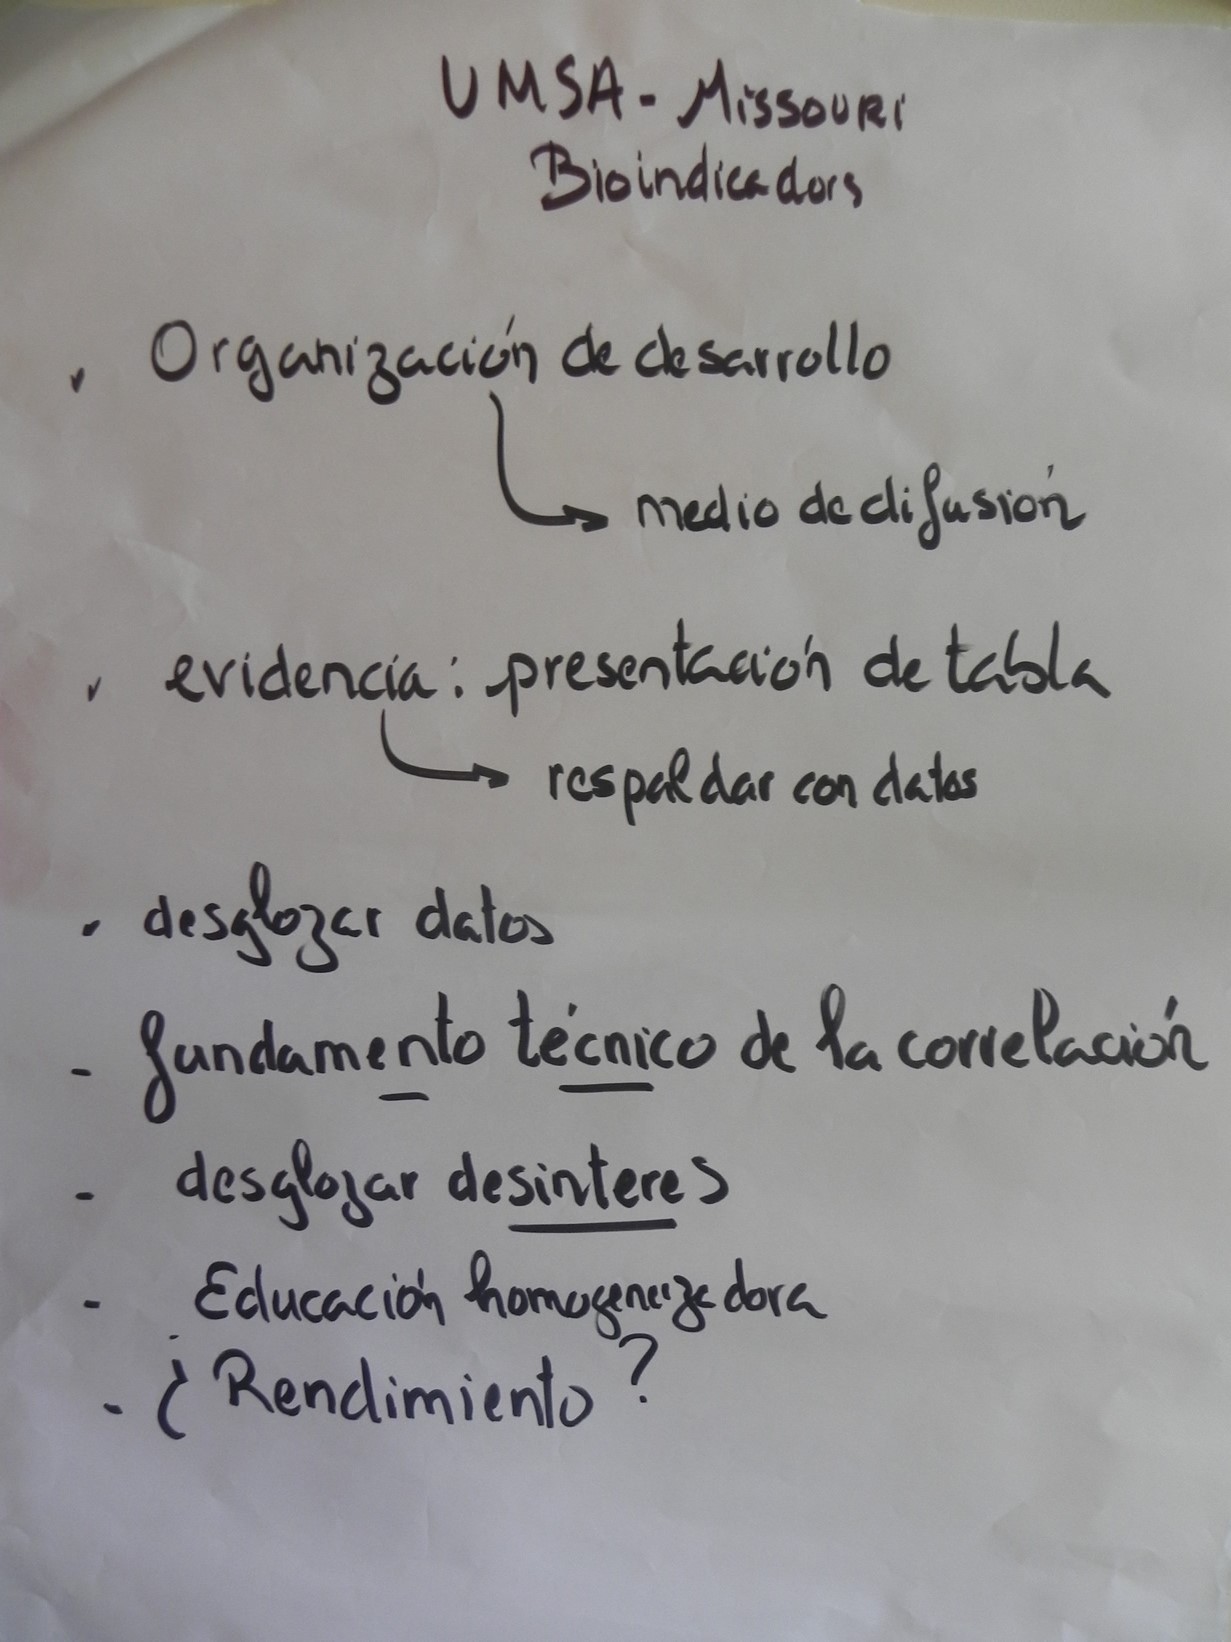 UMSA - Missouri
Bioindicadors
Organización de desarrollo
medio de difusión
evidencia: presentación de tabla
respaldar con datos
desglozar datos
- fundamento técnico de la correlación
- desglozar desinteres
- Educación homogeneizadora
- ¿Rendimiento?